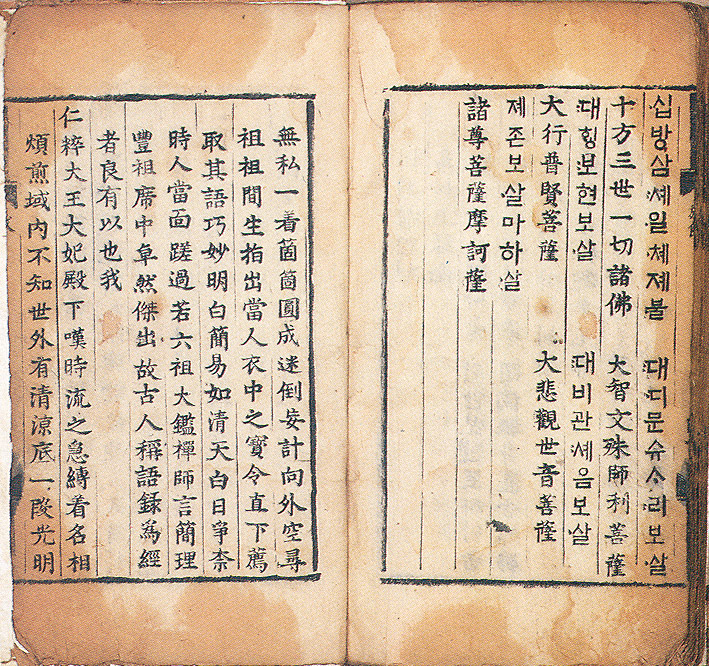 십방삼셰일쳬졔불 대디문슈ᄉᆞ리보살
十方三世一切諸佛 大智文殊師利菩薩
대ᄒᆡᆼ보현보살 대비관셰음보살
大行普賢菩薩 大悲觀世音菩薩
졔존보살마하살
諸尊菩薩摩訶薩
無私一着箇箇圓成迷倒妄計向外空尋
祖祖間生指出當人衣中之寶令直下薦
取其語巧妙明白簡易如清天白日爭柰
時人當面蹉過若六祖大鑑禪師言簡理
豐祖席中卓然傑出故古人稱語錄為經
者良有以也我
仁粹大王大妃殿下嘆時流之急縛着名相
煩煎域内不知世外有清凉底一段光明